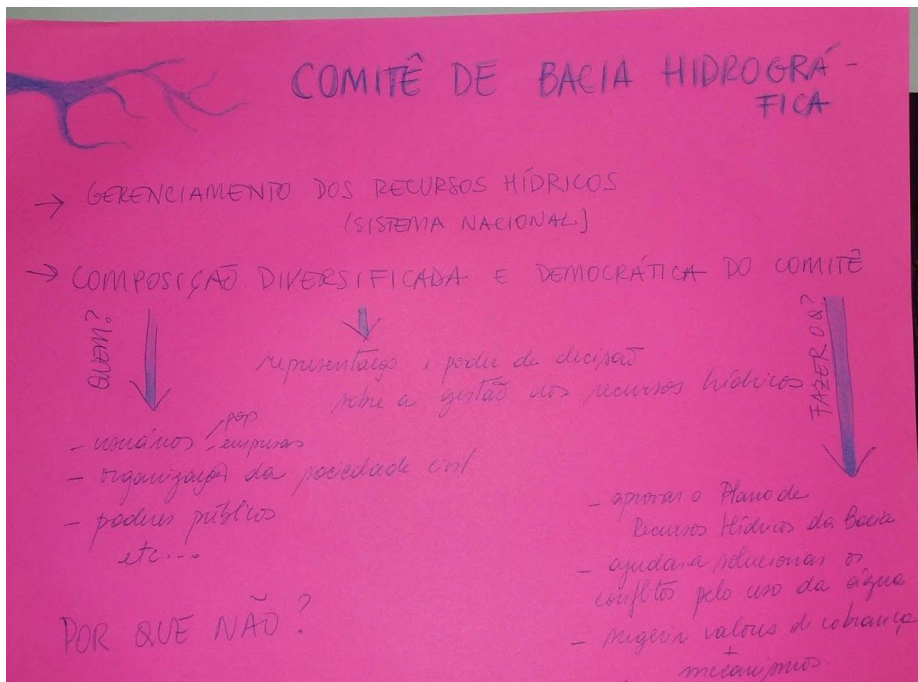 COMITÊ DE BACIA HIDROGRÁ-
FICA
→ GERENCIAMENTO DOS RECURSOS HÍDRICOS
(SISTEMA NACIONAL)
→ COMPOSIÇÃO DIVERSIFICADA E DEMOCRÁTICA DO COMITÊ
QUEM?
representação e poder de decisão
sobre a gestão dos recursos hídricos
FAZER O Q?
- usuários pop
empresas
- organização da sociedade civil
- poderes públicos
etc...
- aprovar o Plano de
Recursos Hídricos da Bacia
- ajudar a solucionar os
conflitos pelo uso da água
- sugerir valores d cobrança
+
mecanismos.
POR QUE NÃO?